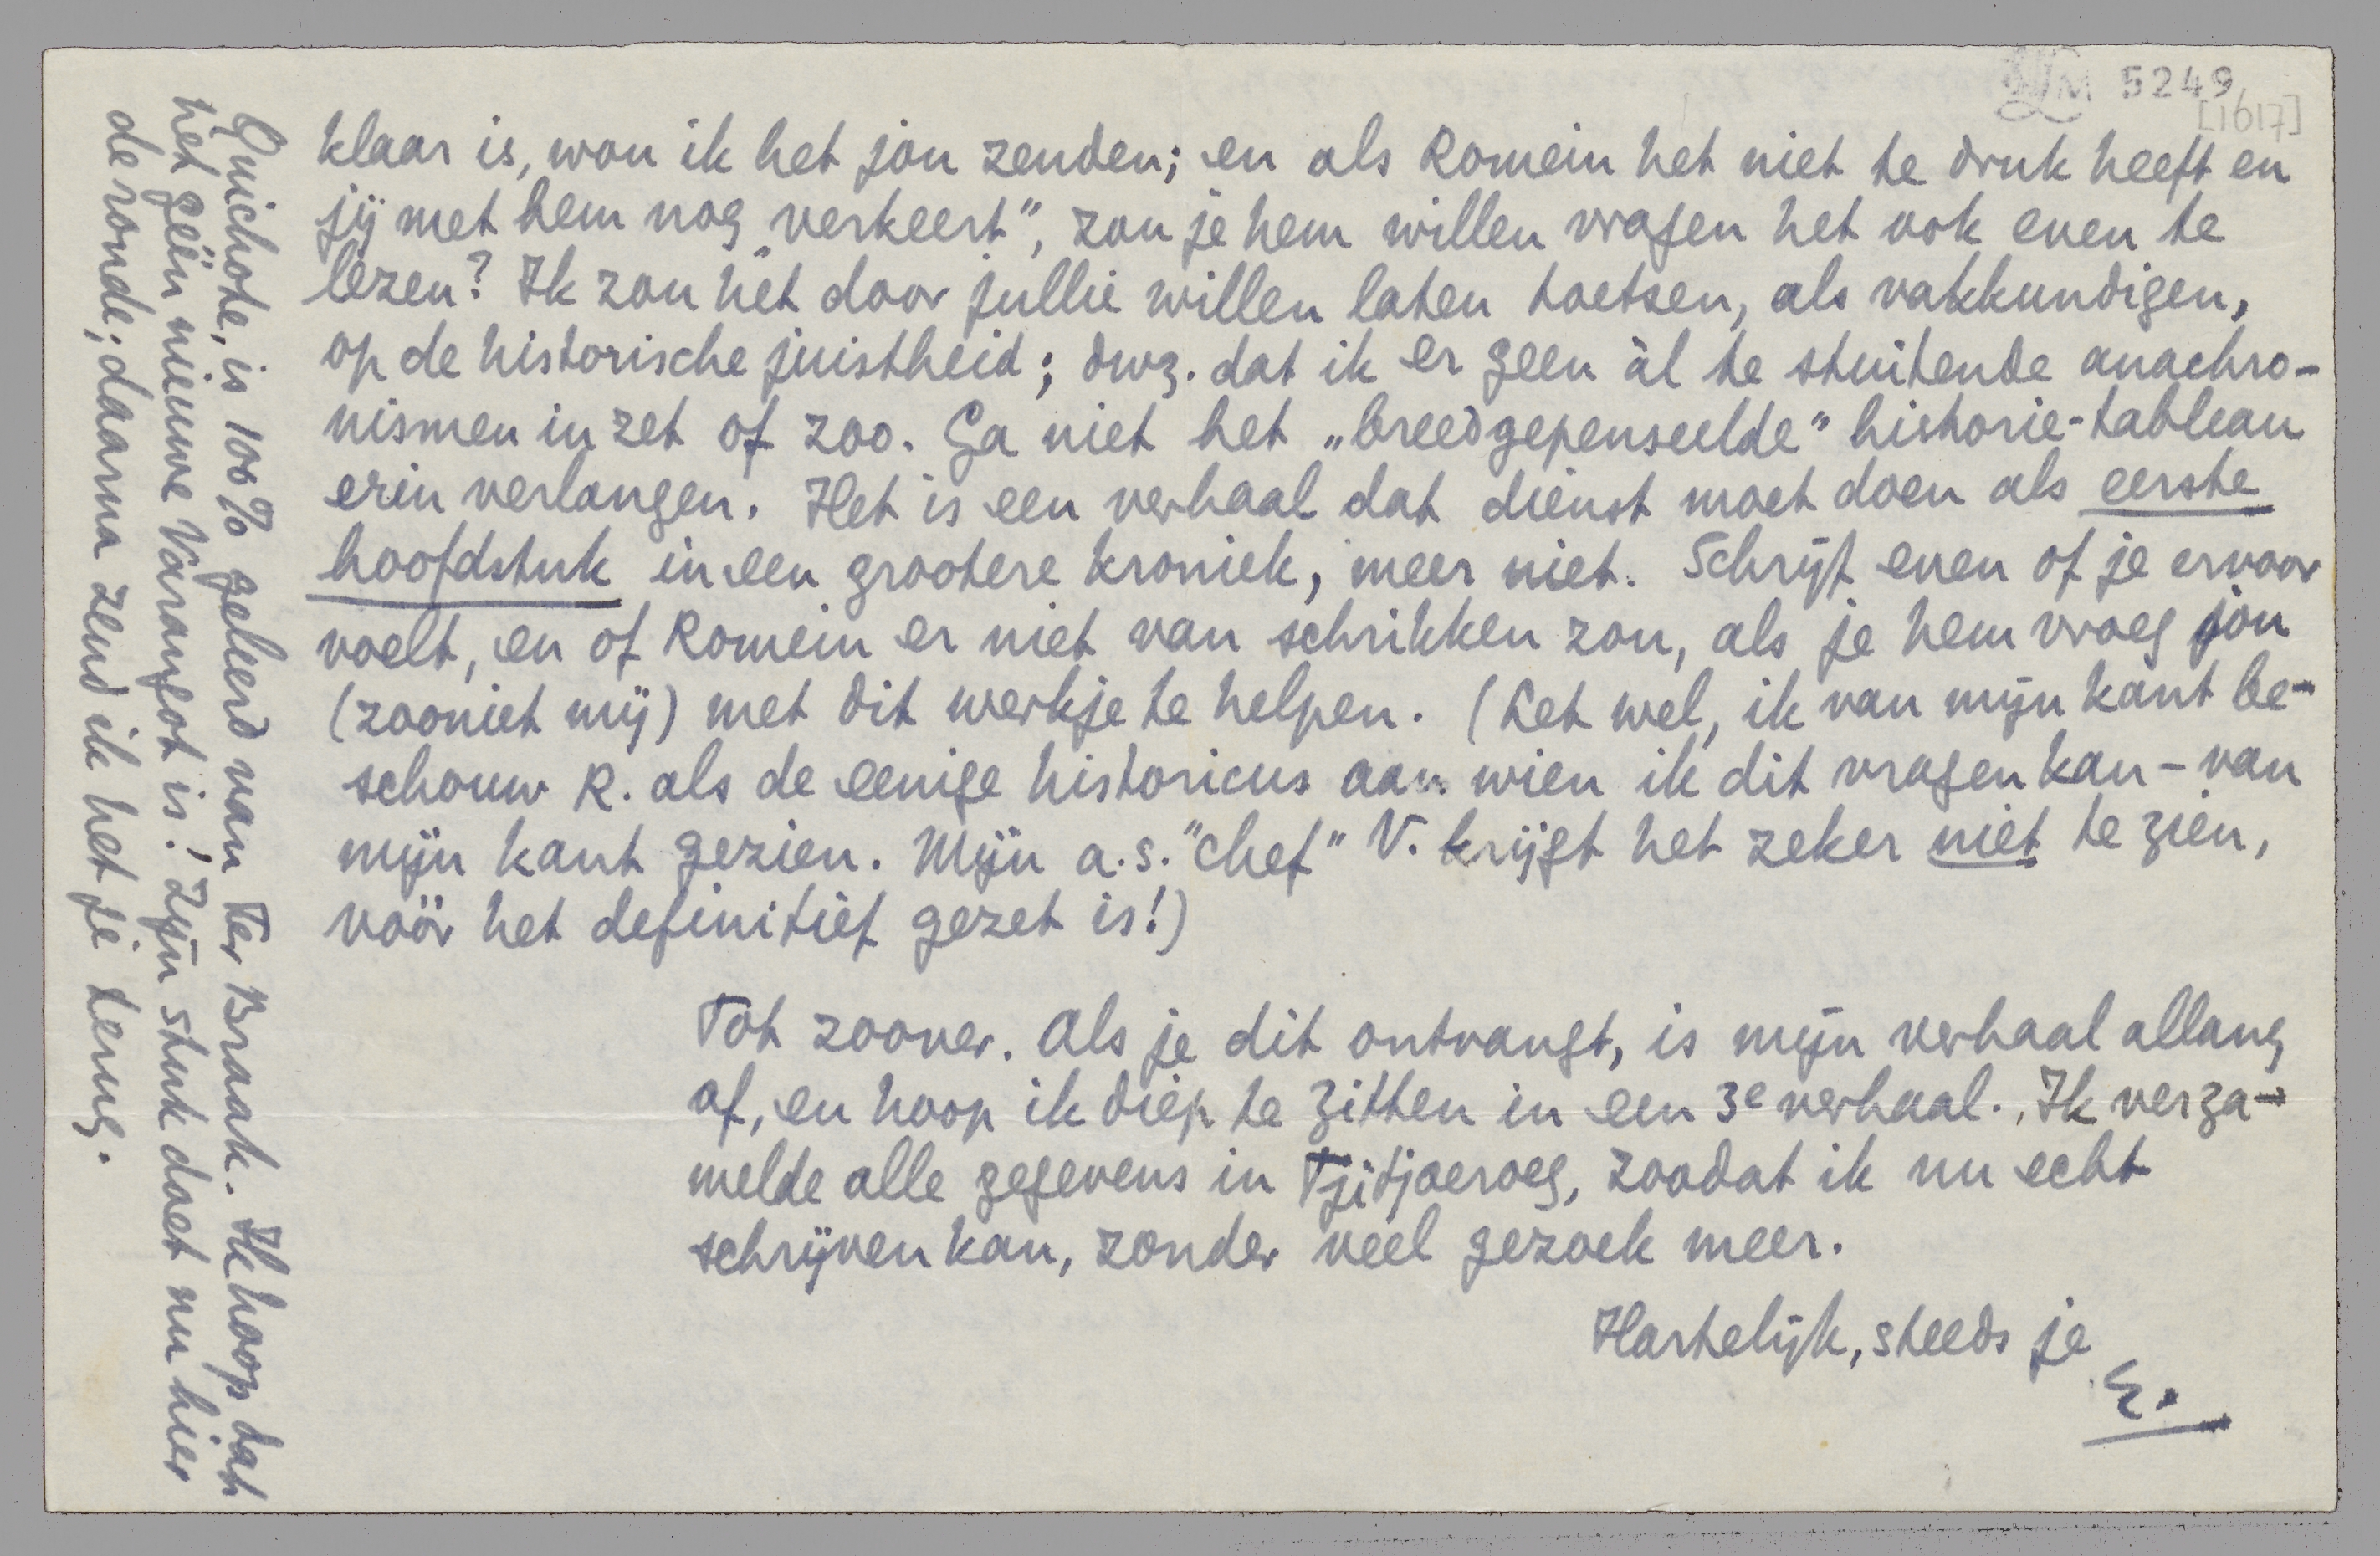 LM 5249
[1617]
klaar is, wou ik het jou zenden; en als Romein het niet te druk heeft en
jij met hem nog „verkeert”, zou je hem willen vragen het ook even te
lezen? Ik zou hèt door jullie willen laten toetsen, als vakkundigen,
op de historische juistheid; dwz. dat ik er geen àl te stuitende anachro-
nismen in zet of zoo. Ga niet het „breedgepenseelde” historie-tableau
erin verlangen. Het is een verhaal dat dienst moet doen als eerste
hoofdstuk in een grootere kroniek, meer niet. Schrijf even of je ervoor
voelt, en of Romein er niet van schrikken zou, als je hem vroeg jou
(zooniet mij) met dit werkje te helpen. (Let wel, ik van mijn kant be-
schouw R. als de eenige historicus aan wien ik dit vragen kan – van
mijn kant gezien. Mijn a.s. "chef" V. krijgt het zeker niet te zien,
vóór het definitief gezet is!)
Tot zoover. Als je dit ontvangt, is mijn verhaal allang
af, en hoop ik diep te zitten in een 3e verhaal. Ik verza-
melde alle gegevens in Tjitjoeroeg, zoodat ik nu echt
schrijven kan, zonder veel gezoek meer.
Hartelijk, steeds je
Quichote, is 100% geleerd van Ter Braak. Ik hoop dat
het géén nieuwe Varangot is! Zijn stuk doet nu hier
de ronde; daarna zend ik het je terug.